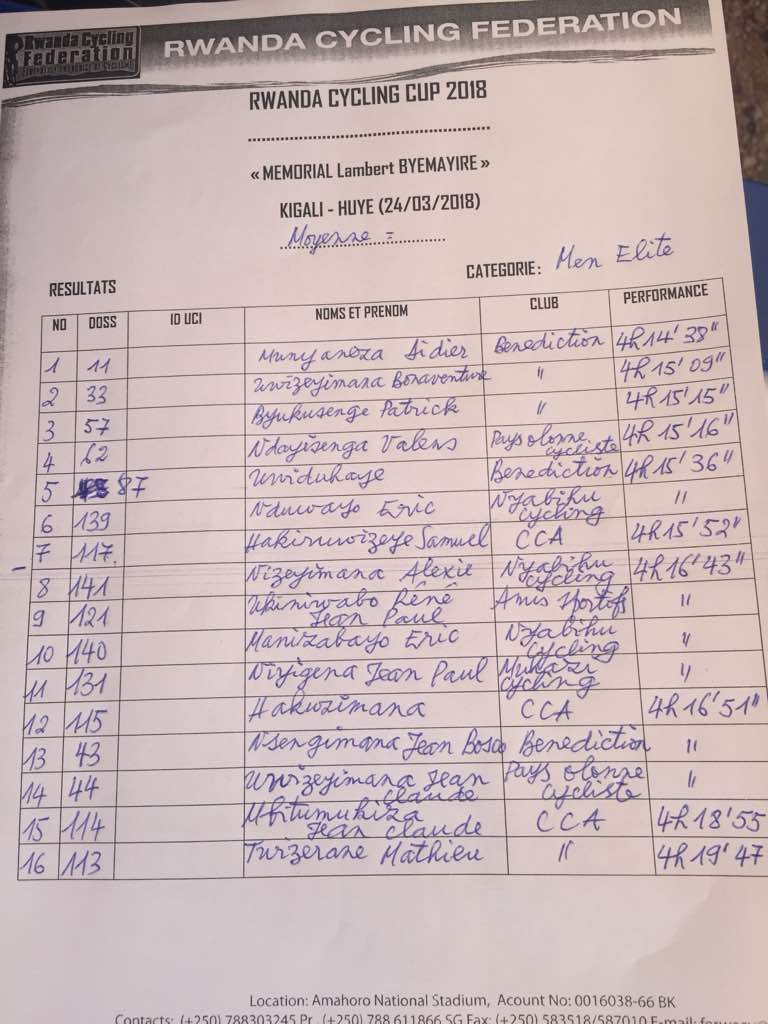 Rwanda Cycling
Federation
RWANDA CYCLING FEDERATION
RWANDA CYCLING CUP 2018
« MEMORIAL Lambert BYEMAYIRE »
KIGALI - HUYE (24/03/2018)
Moyenne =
CATEGORIE: Men Elite
RESULTATS
NO DOSS ID UCI NOMS ET PRENOM CLUB PERFORMANCE
1 11 Munyaneza Didier Benediction 4h 14' 38"
2 33 Uwizeyimana Bonaventure " 4h 15' 09"
3 57 Byukusenge Patrick " 4h 15' 15"
4 62 Ndayisenga Valens Pays olonne cycliste 4h 15' 16"
5 87 Uwiduhaye Benediction 4h 15' 36"
6 139 Nduwayo Eric Nyabihu cycling "
7 117 Hakiruwizeye Samuel CCA 4h 15' 52"
8 141 Nizeyimana Alexie Nyabihu cycling 4h 16' 43"
9 121 Ukiniwabo Réné Jean Paul Amis sportifs "
10 140 Manizabayo Eric Nyabihu cycling "
11 131 Niyigena Jean Paul Muhazi cycling "
12 115 Hakuzimana CCA 4h 16' 51"
13 43 Nsengimana Jean Bosco Benediction "
14 44 Uwizeyimana Jean claude Pays olonne cycliste "
15 114 Mbitumukiza Jean claude CCA 4h 18' 55
16 113 Turizerane Mathieu " 4h 19' 47
Location: Amahoro National Stadium, Acount No: 0016038-66 BK
Contacts: (+250) 788303245 Pr , (+250) 788 611866 SG Fax: (+250) 583518/587010 E-mail: